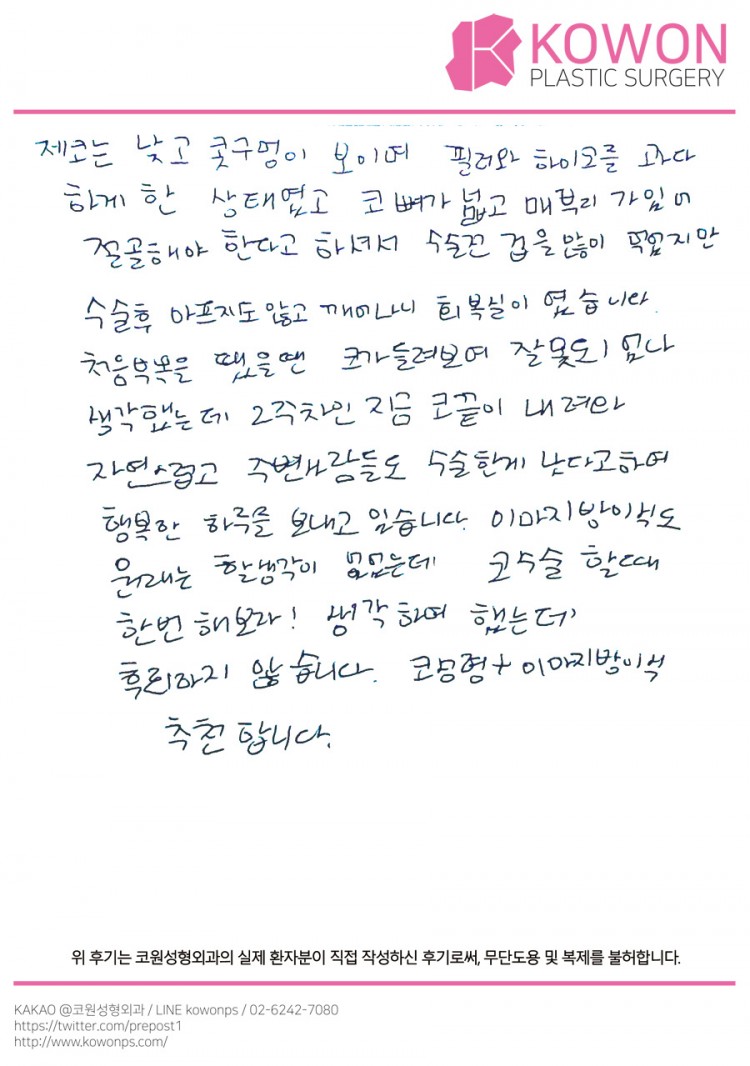 KOWON
PLASTIC SURGERY
제코는 낮고 콧구멍이 보이며 필러와 하이코를 과다
하게 한 상태였고 코뼈가 넓고 매부리 가있어
절골해야 한다고 하셔서 수술전 겁을 많이 먹었지만
수술후 아프지도 않고 깨어나니 회복실이 였습니다
처음부목을 땠을땐 코가들려보여 잘못되었나
생각했는데 2주차인 지금 코끝이 내려와
자연스럽고 주변사람들도 수술한게 낫다고하며
행복한 하루를 보내고 있습니다. 이마지방이식도
원래는 할생각이 없었는데 코수술 할때
한번 해보자! 생각하여 했는데
후회하지 않습니다. 코성형+이마지방이식
추천 합니다.
위 후기는 코원성형외과의 실제 환자분이 직접 작성하신 후기로써, 무단도용 및 복제를 불허합니다.
KAKAO @코원성형외과 / LINE kowonps / 02-6242-7080
https://twitter.com/prepost1
http://www.kowonps.com/